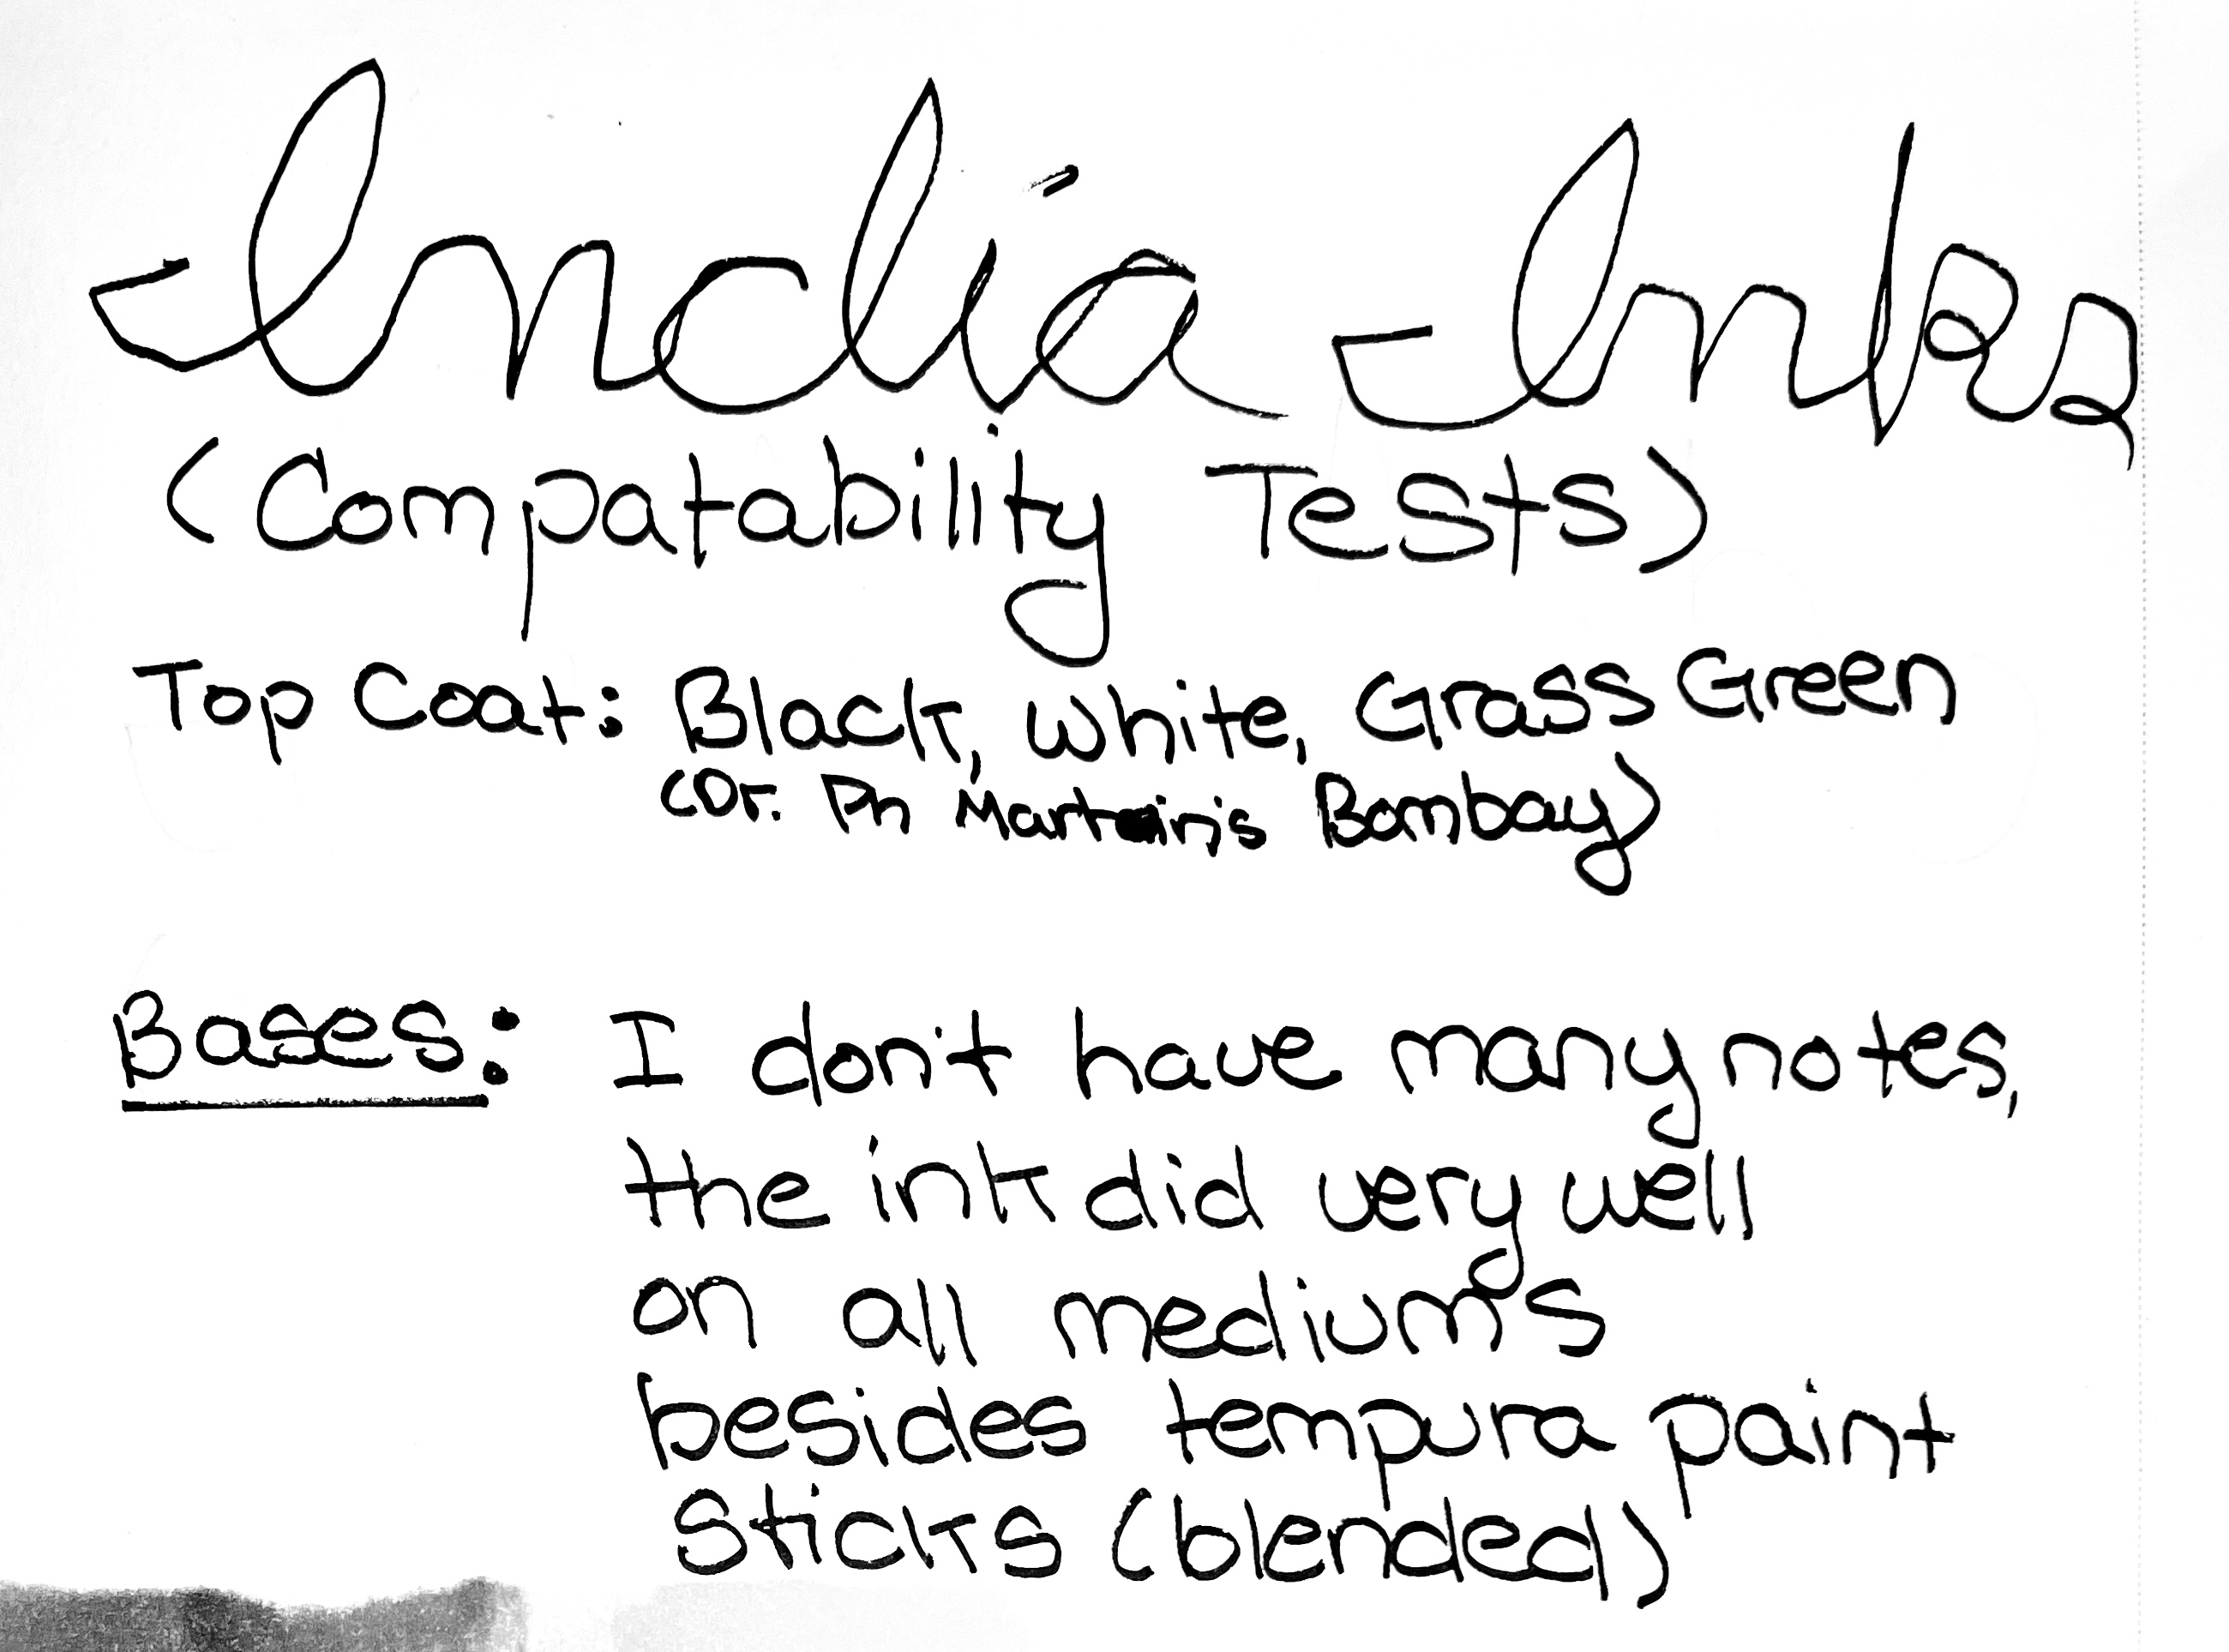 India Inks
(Compatability Tests)
Top Coat: Black, White, Grass Green
(Dr. Ph Martin's Bombay)
Bases: I don't have many notes,
the ink did very well
on all mediums
besides tempura paint
sticks (blended)